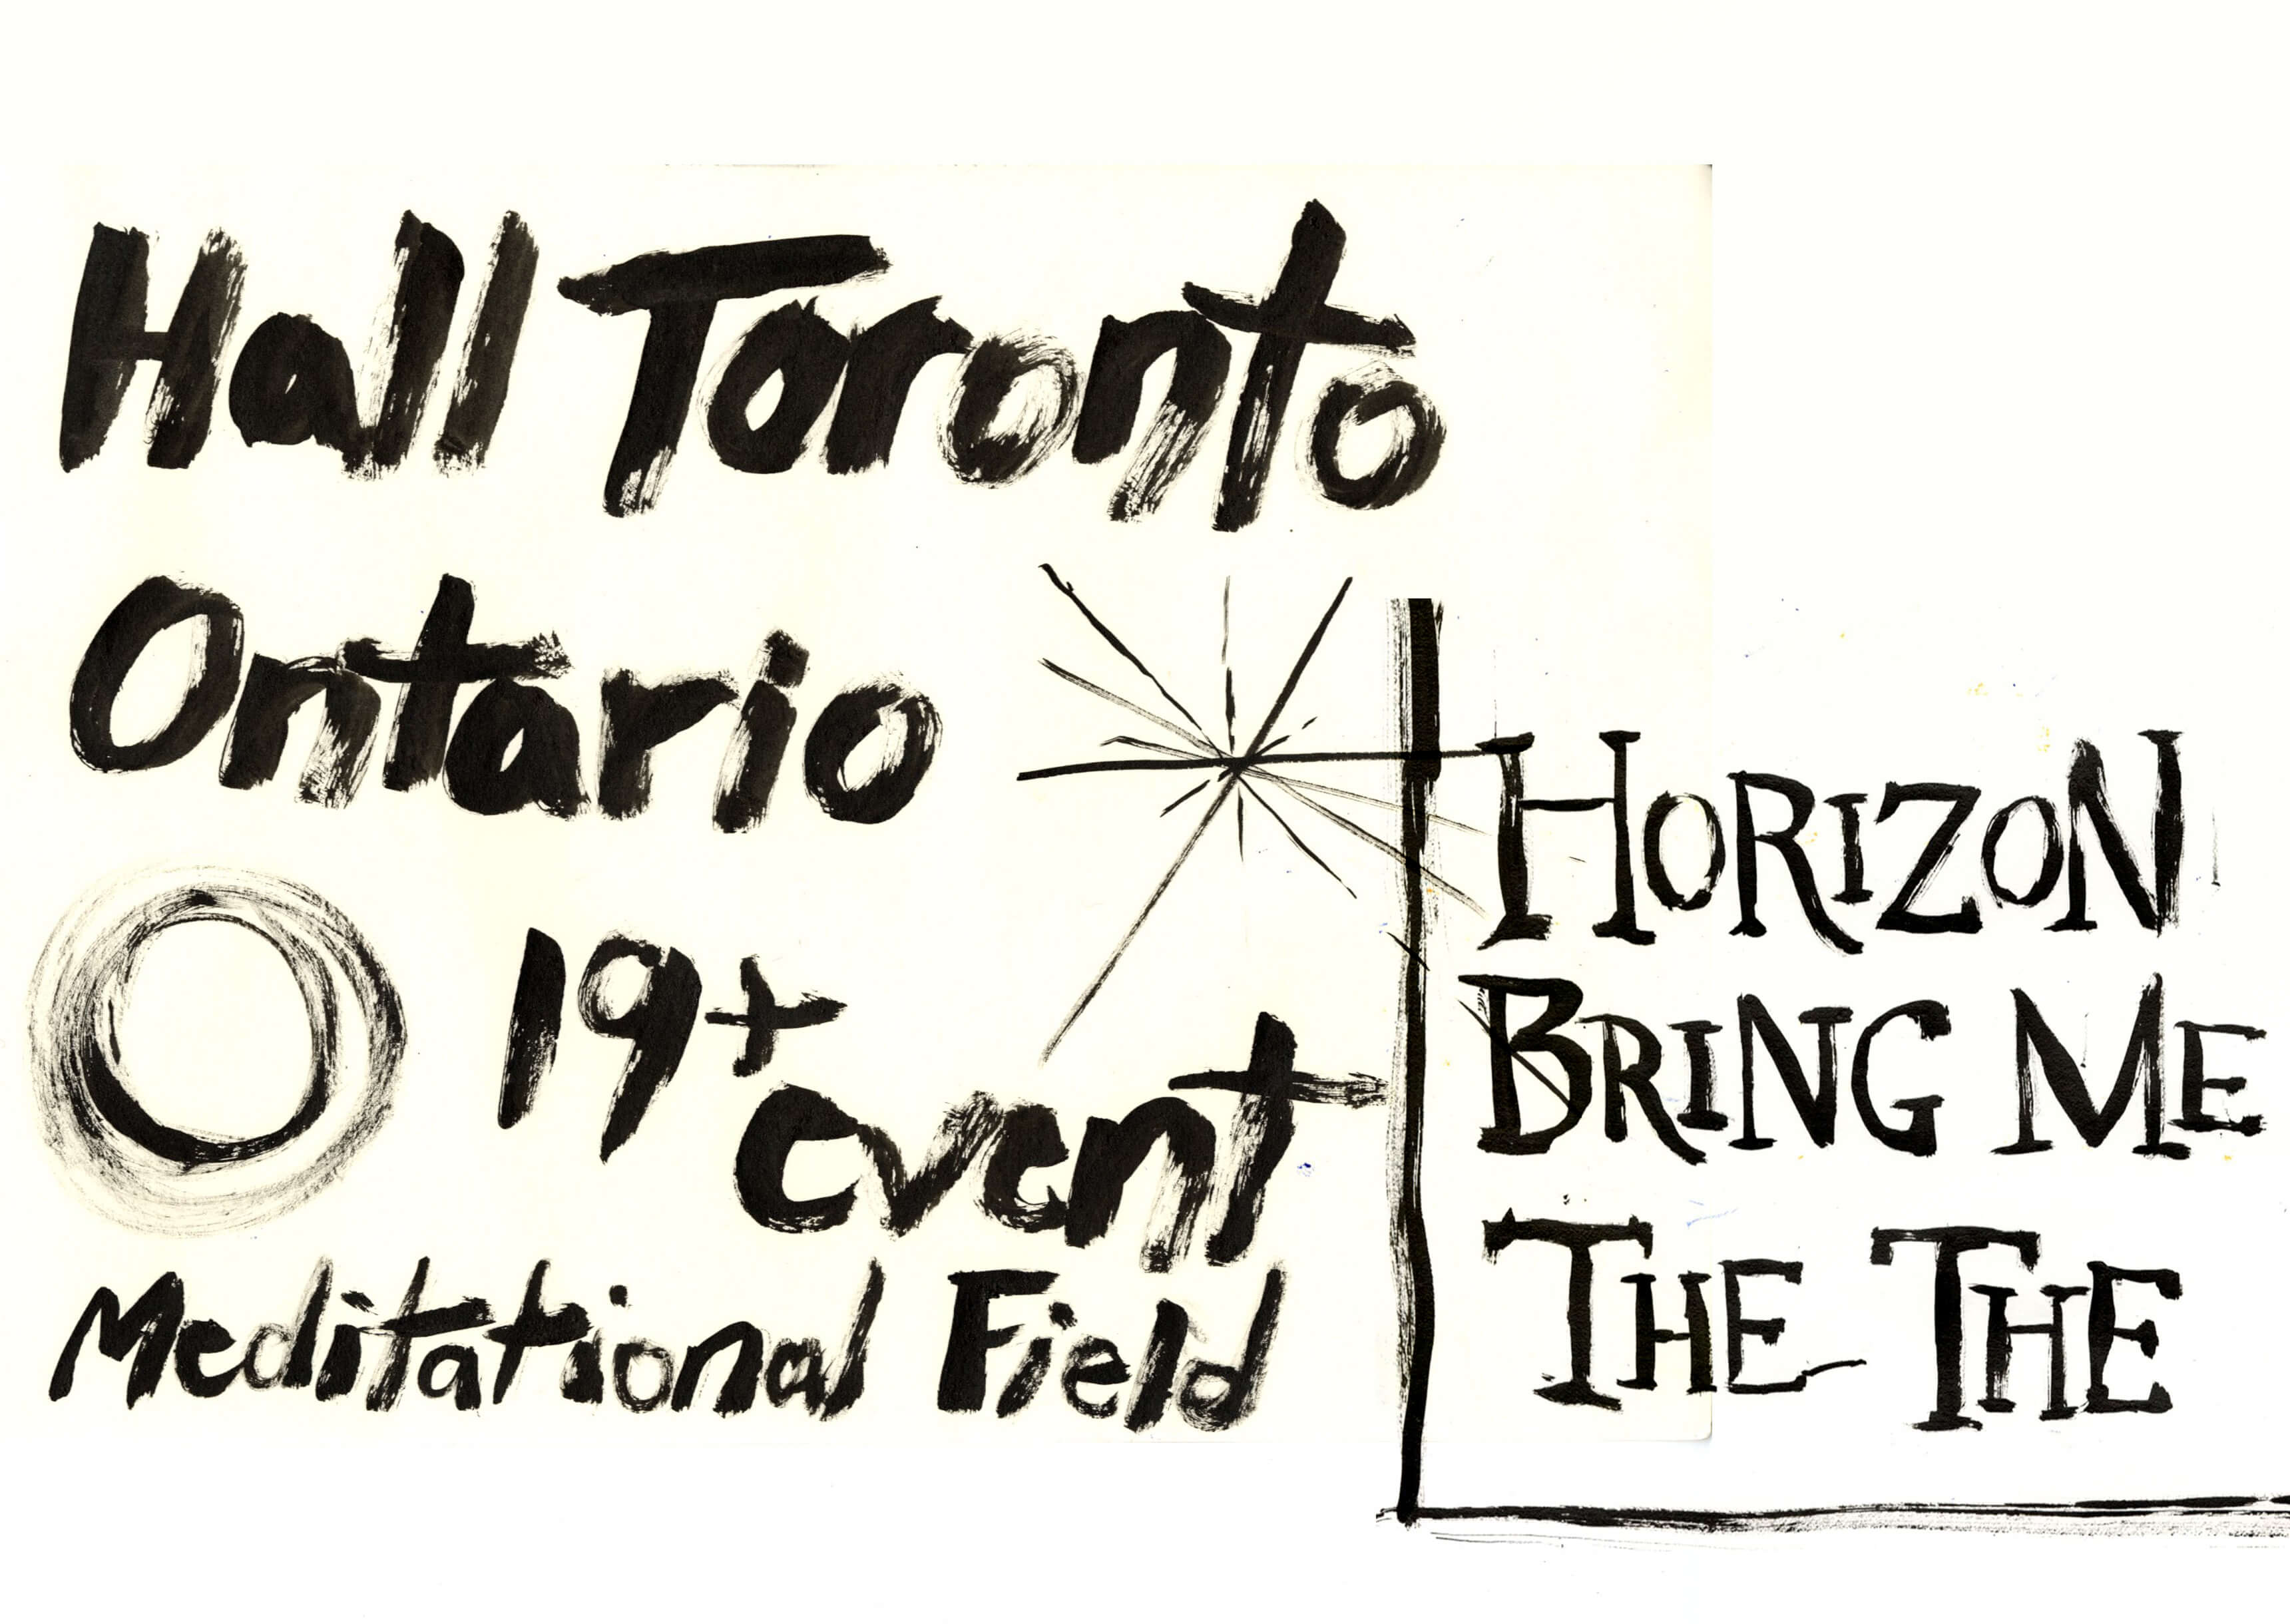 Hall Toronto
Ontario
19+
event
Meditational Field
HORIZON
BRING ME
THE THE